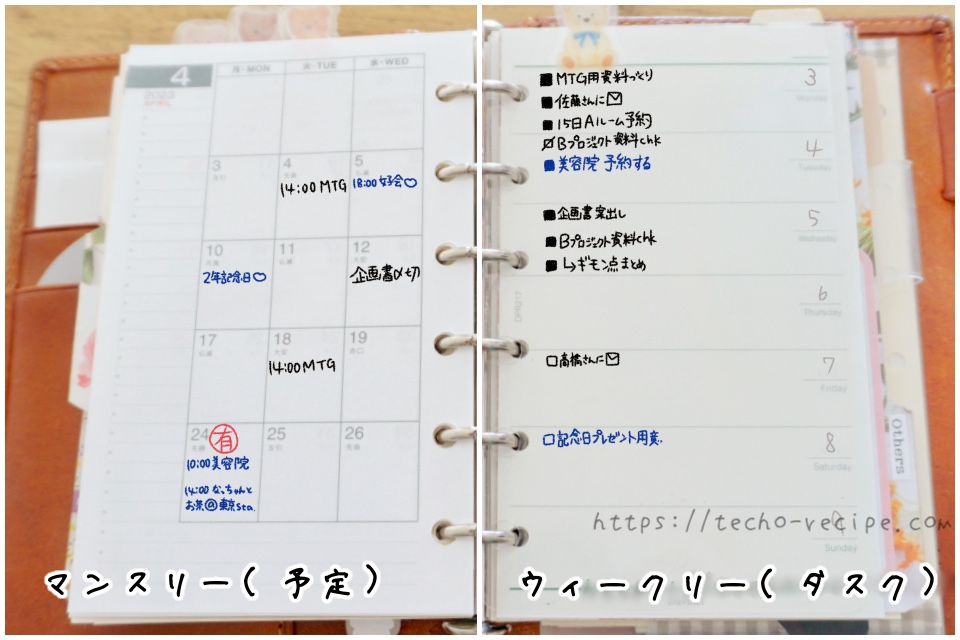 4
2023
APRIL
月・MON 火・TUE 水・WED
3 4 5
先負 仏滅
14:00 MTG 18:00 女子会♡
10 11 12
仏滅 大安
2年記念日♡ 企画書〆切
17 18 19
仏滅 大安 赤口
14:00 MTG
24 25 26
有
10:00 美容院
14:00 なっちゃんと
お茶@東京sta.
マンスリー(予定)
■MTG用資料づくり
■佐藤さんに✉
■15日Aルーム予約
Bプロジェクト資料chk
■美容院 予約する
■企画書案出し
■Bプロジェクト資料chk
■↳ギモン点まとめ
□高橋さんに✉
□記念日プレゼント用意.
3
Monday
4
Tuesday
5
Wednesday
6
Thursday
7
Friday
8
Saturday
Sunday
Others
https://techo-recipe.com
ウィークリー(タスク)